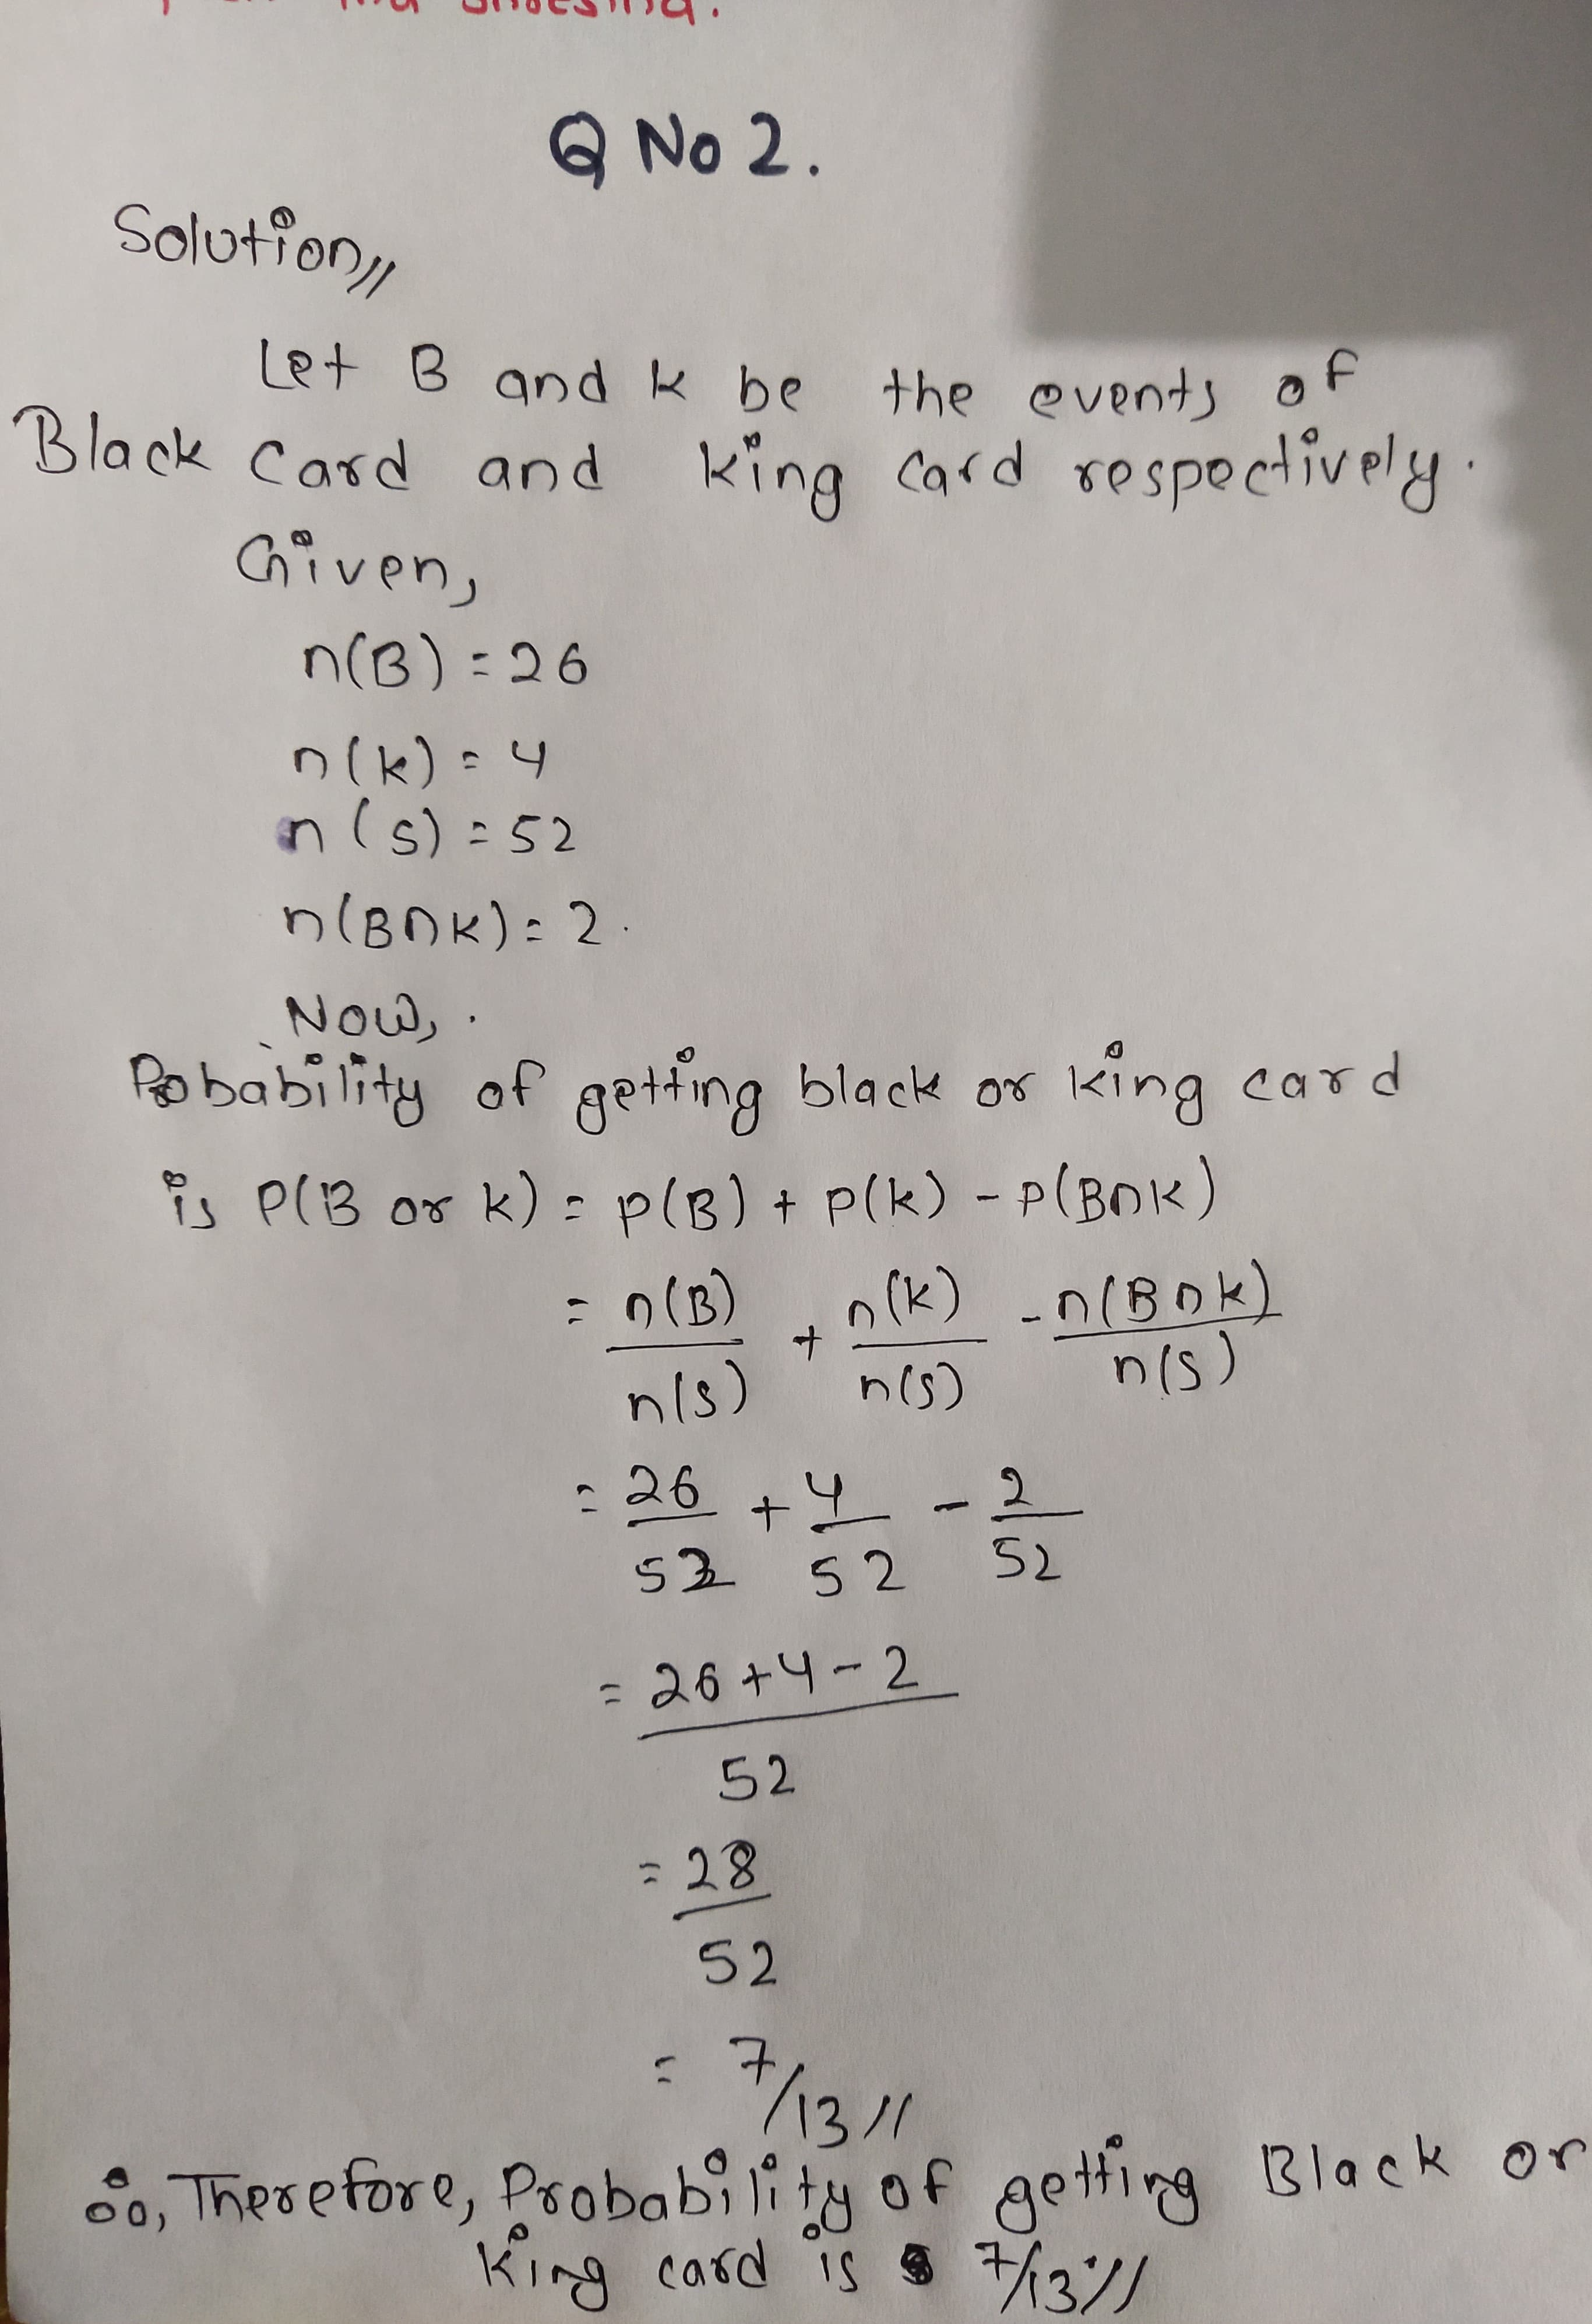 Q No 2.
Solution//
Let B and K be the events of
Black Card and King Card respectively.
Given,
n(B) = 26
n(k) = 4
n(s) = 52
n(B∩K) = 2.
Now,
Probability of getting black or king card
is P(B or k) = P(B) + P(k) - P(B∩K)
= n(B)/n(s) + n(k)/n(s) - n(B∩K)/n(s)
= 26/52 + 4/52 - 2/52
= 26+4-2/52
= 28/52
= 7/13//
∴, Therefore, Probability of getting Black or
King card is 7/13//